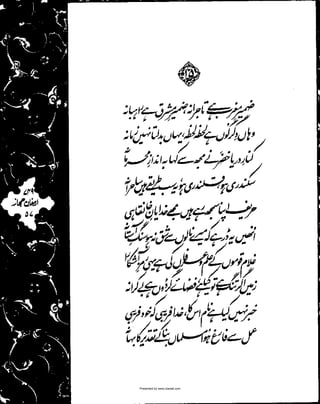 ضمیر مغرب ہے تاجرانہ، ضمیر مشرق ہے راہبانہ
وہاں دگرگوں ہے لحظہ لحظہ، یہاں بدلتا نہیں زمانہ
کنار دریا خضر نے مجھ سے کہا بہ انداز محرمانہ
سکندری ہو، قلندری ہو، یہ سب طریقے ہیں ساحرانہ
حریف اپنا سمجھ رہے ہیں مجھے خدایان خانقاہی
انھیں یہ ڈر ہے کہ میرے نالوں سے شق نہ ہو سنگ آستانہ
غلام قوموں کے علم و عرفاں کی ہے یہی رمز آشکارا
زمیں اگر تنگ ہے تو کیا ہے، فضائے گردوں ہے بے کرانہ
خبر نہیں کیا ہے نام اس کا، خدا فریبی کہ خود فریبی
عمل سے فارغ ہوا مسلماں بنا کے تقدیر کا بہانہ
ارمغان حجاز
۵۷
Presented by www.ziaraat.com